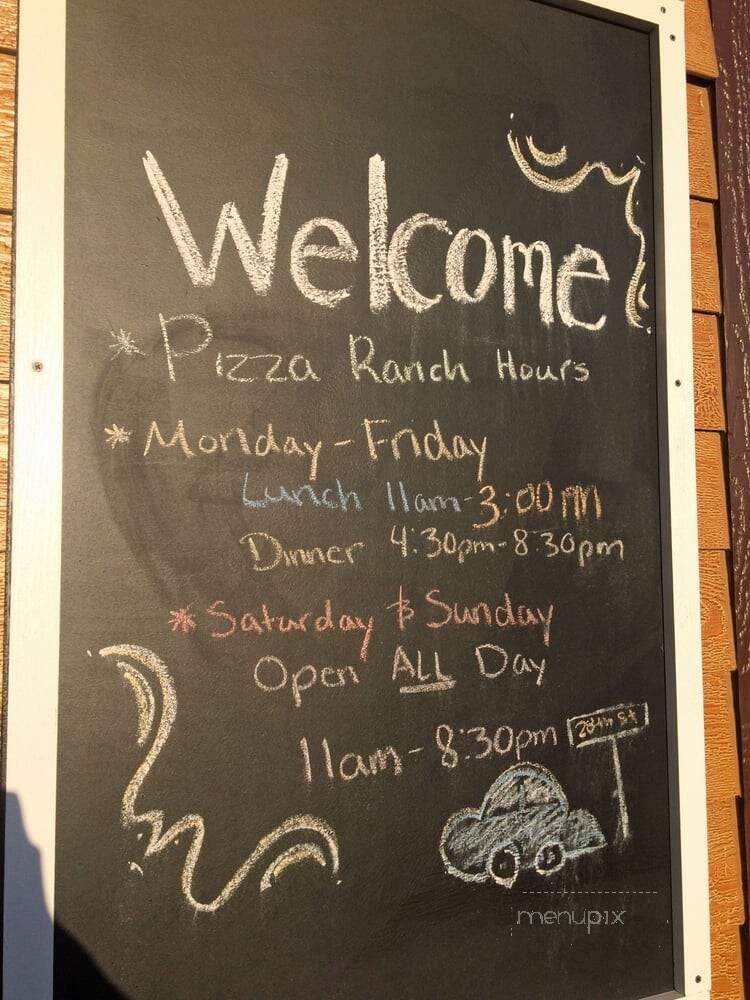 Welcome
* Pizza Ranch Hours
* Monday - Friday
Lunch 11am - 3:00 pm
Dinner 4:30pm - 8:30pm
* Saturday & Sunday
Open ALL Day
11am - 8:30pm
menupix